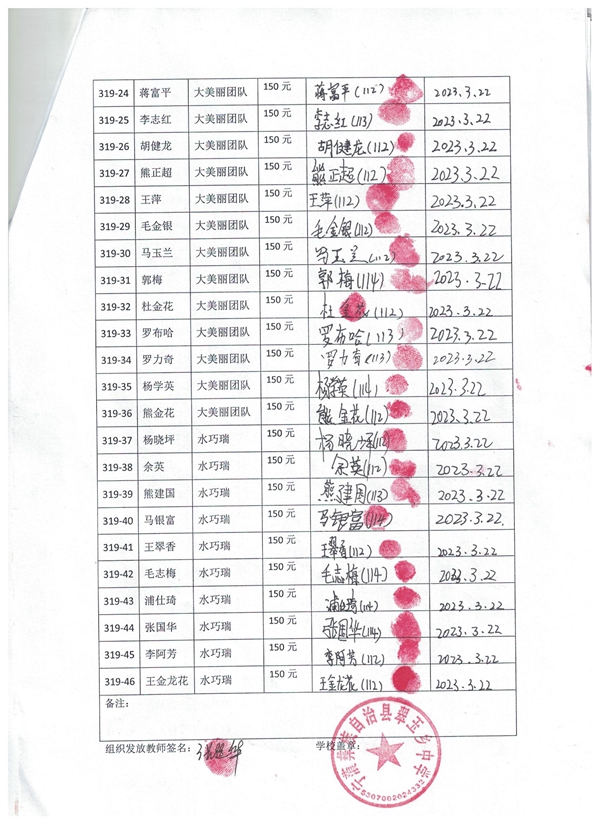 319-24 蒋富平 大美丽团队 150 元 蒋富平(112) 2023.3.22
319-25 李志红 大美丽团队 150 元 李志红(113) 2023.3.22
319-26 胡健龙 大美丽团队 150 元 胡健龙(112) 2023.3.22
319-27 熊正超 大美丽团队 150 元 熊正超(112) 2023.3.22
319-28 王萍 大美丽团队 150 元 王萍(112) 2023.3.22
319-29 毛金银 大美丽团队 150 元 毛金银(112) 2023.3.22
319-30 马玉兰 大美丽团队 150 元 马玉兰(112) 2023.3.22
319-31 郭梅 大美丽团队 150 元 郭梅(114) 2023.3.22
319-32 杜金花 大美丽团队 150 元 杜金花(112) 2023.3.22
319-33 罗布哈 大美丽团队 150 元 罗布哈(113) 2023.3.22
319-34 罗力奇 大美丽团队 150 元 罗力奇(113) 2023.3.22
319-35 杨学英 大美丽团队 150 元 杨学英(114) 2023.3.22
319-36 熊金花 大美丽团队 150 元 熊金花(112) 2023.3.22
319-37 杨晓坪 水巧瑞 150 元 杨晓坪(112) 2023.3.22
319-38 余英 水巧瑞 150 元 余英(112) 2023.3.22
319-39 熊建国 水巧瑞 150 元 熊建国(113) 2023.3.22
319-40 马银富 水巧瑞 150 元 马银富(114) 2023.3.22
319-41 王翠香 水巧瑞 150 元 王翠香(112) 2023.3.22
319-42 毛志梅 水巧瑞 150 元 毛志梅(114) 2023.3.22
319-43 浦仕琦 水巧瑞 150 元 浦仕琦(114) 2023.3.22
319-44 张国华 水巧瑞 150 元 张国华(114) 2023.3.22
319-45 李阿芳 水巧瑞 150 元 李阿芳(112) 2023.3.22
319-46 王金龙花 水巧瑞 150 元 王金龙花(112) 2023.3.22
备注：
组织发放教师签名： 学校盖章：
宁蒗彝族自治县翠玉乡中学
5307002024333